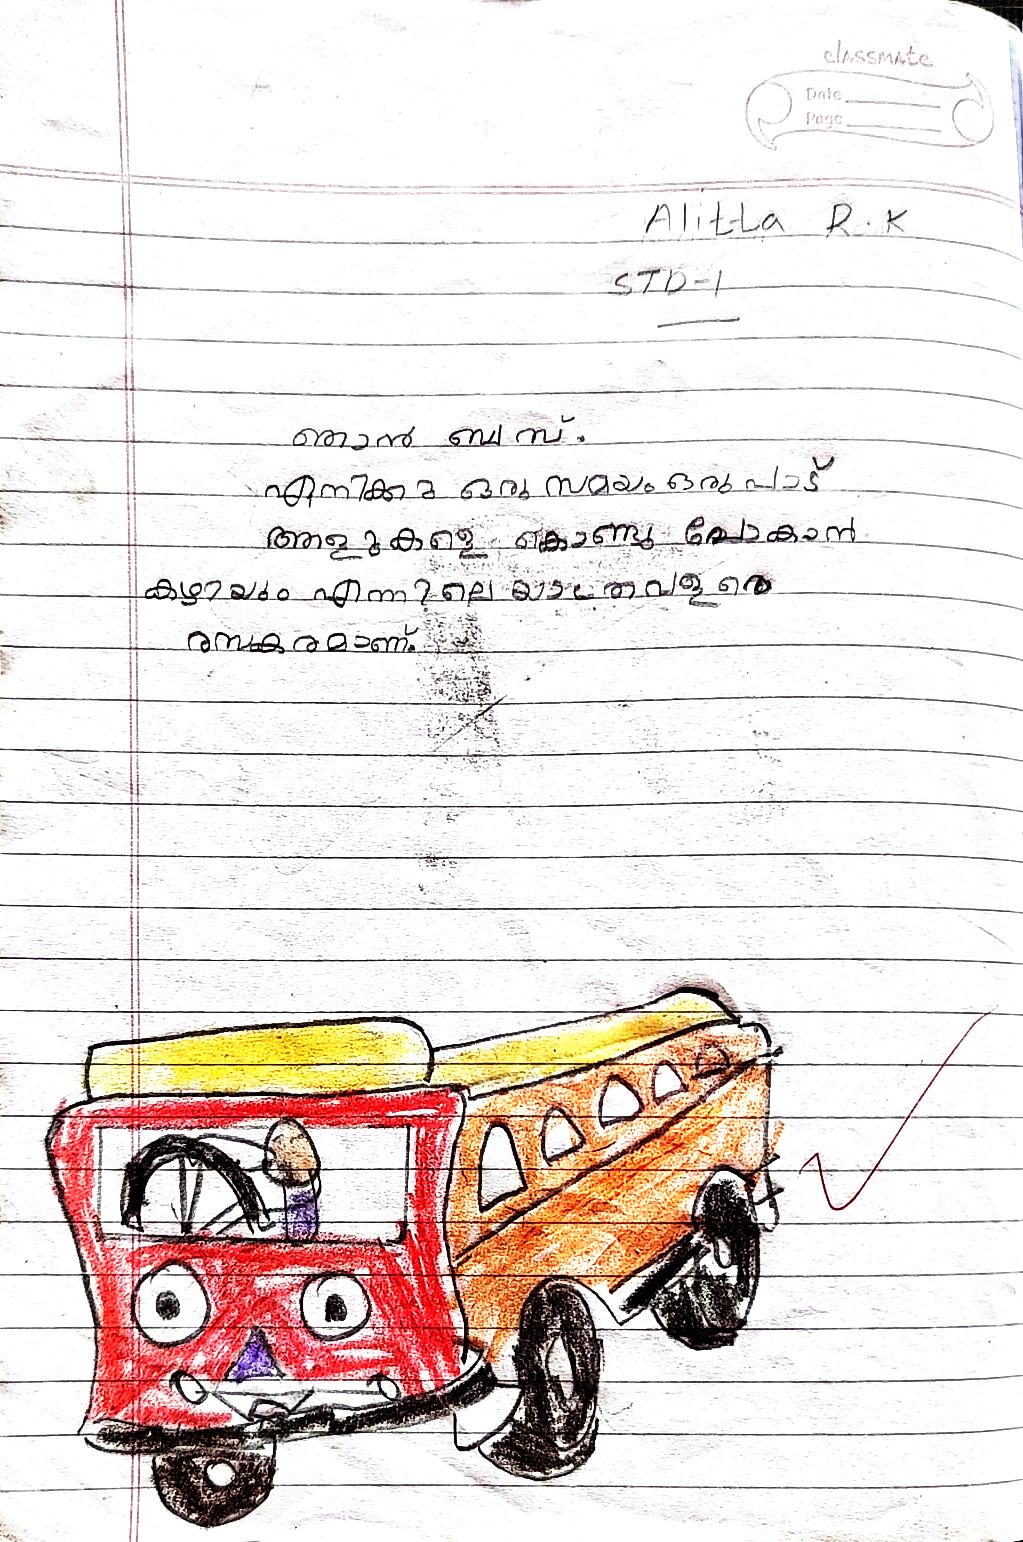 classmate
Date
Page
Alitta R.K
STD-1
ഞാൻ ബസ്.
എനിക്കു ഒരു സമയം ഒരുപാട്
അളുകളെ കൊണ്ടു പോകാൻ
കഴിയും എന്നിലെ യാത്ര വളരെ
രസകരമാണ്.